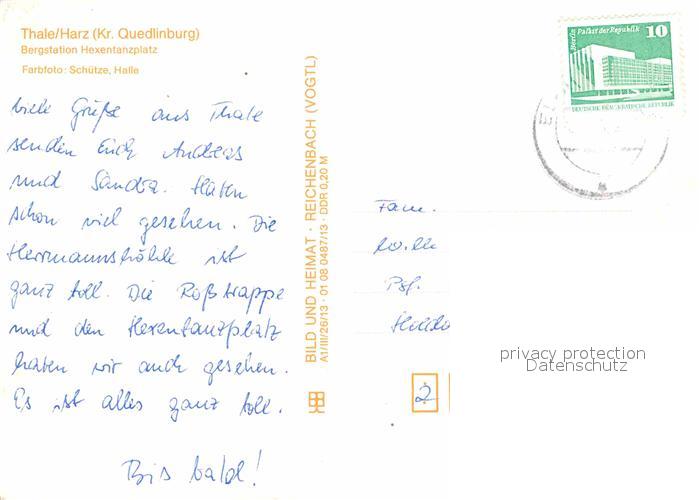 Thale/Harz (Kr. Quedlinburg)
Bergstation Hexentanzplatz
Farbfoto: Schütze, Halle
Viele Grüße aus Thale
senden Euch Andreas
und Sandra. Haben
schon viel gesehen. Die
Herrmannshöhle ist
ganz toll. Die Roßtrappe
und den Hexentanzplatz
haben wir auch gesehen.
Es ist alles ganz toll.
Bis bald!
BILD UND HEIMAT · REICHENBACH (VOGTL)
A1/III/26/13 · 01 08 0487/13 · DDR 0,20 M
Berlin Palast der Republik 10
DEUTSCHE DEMOKRATISCHE REPUBLIK
Fam.
2
privacy protection
Datenschutz